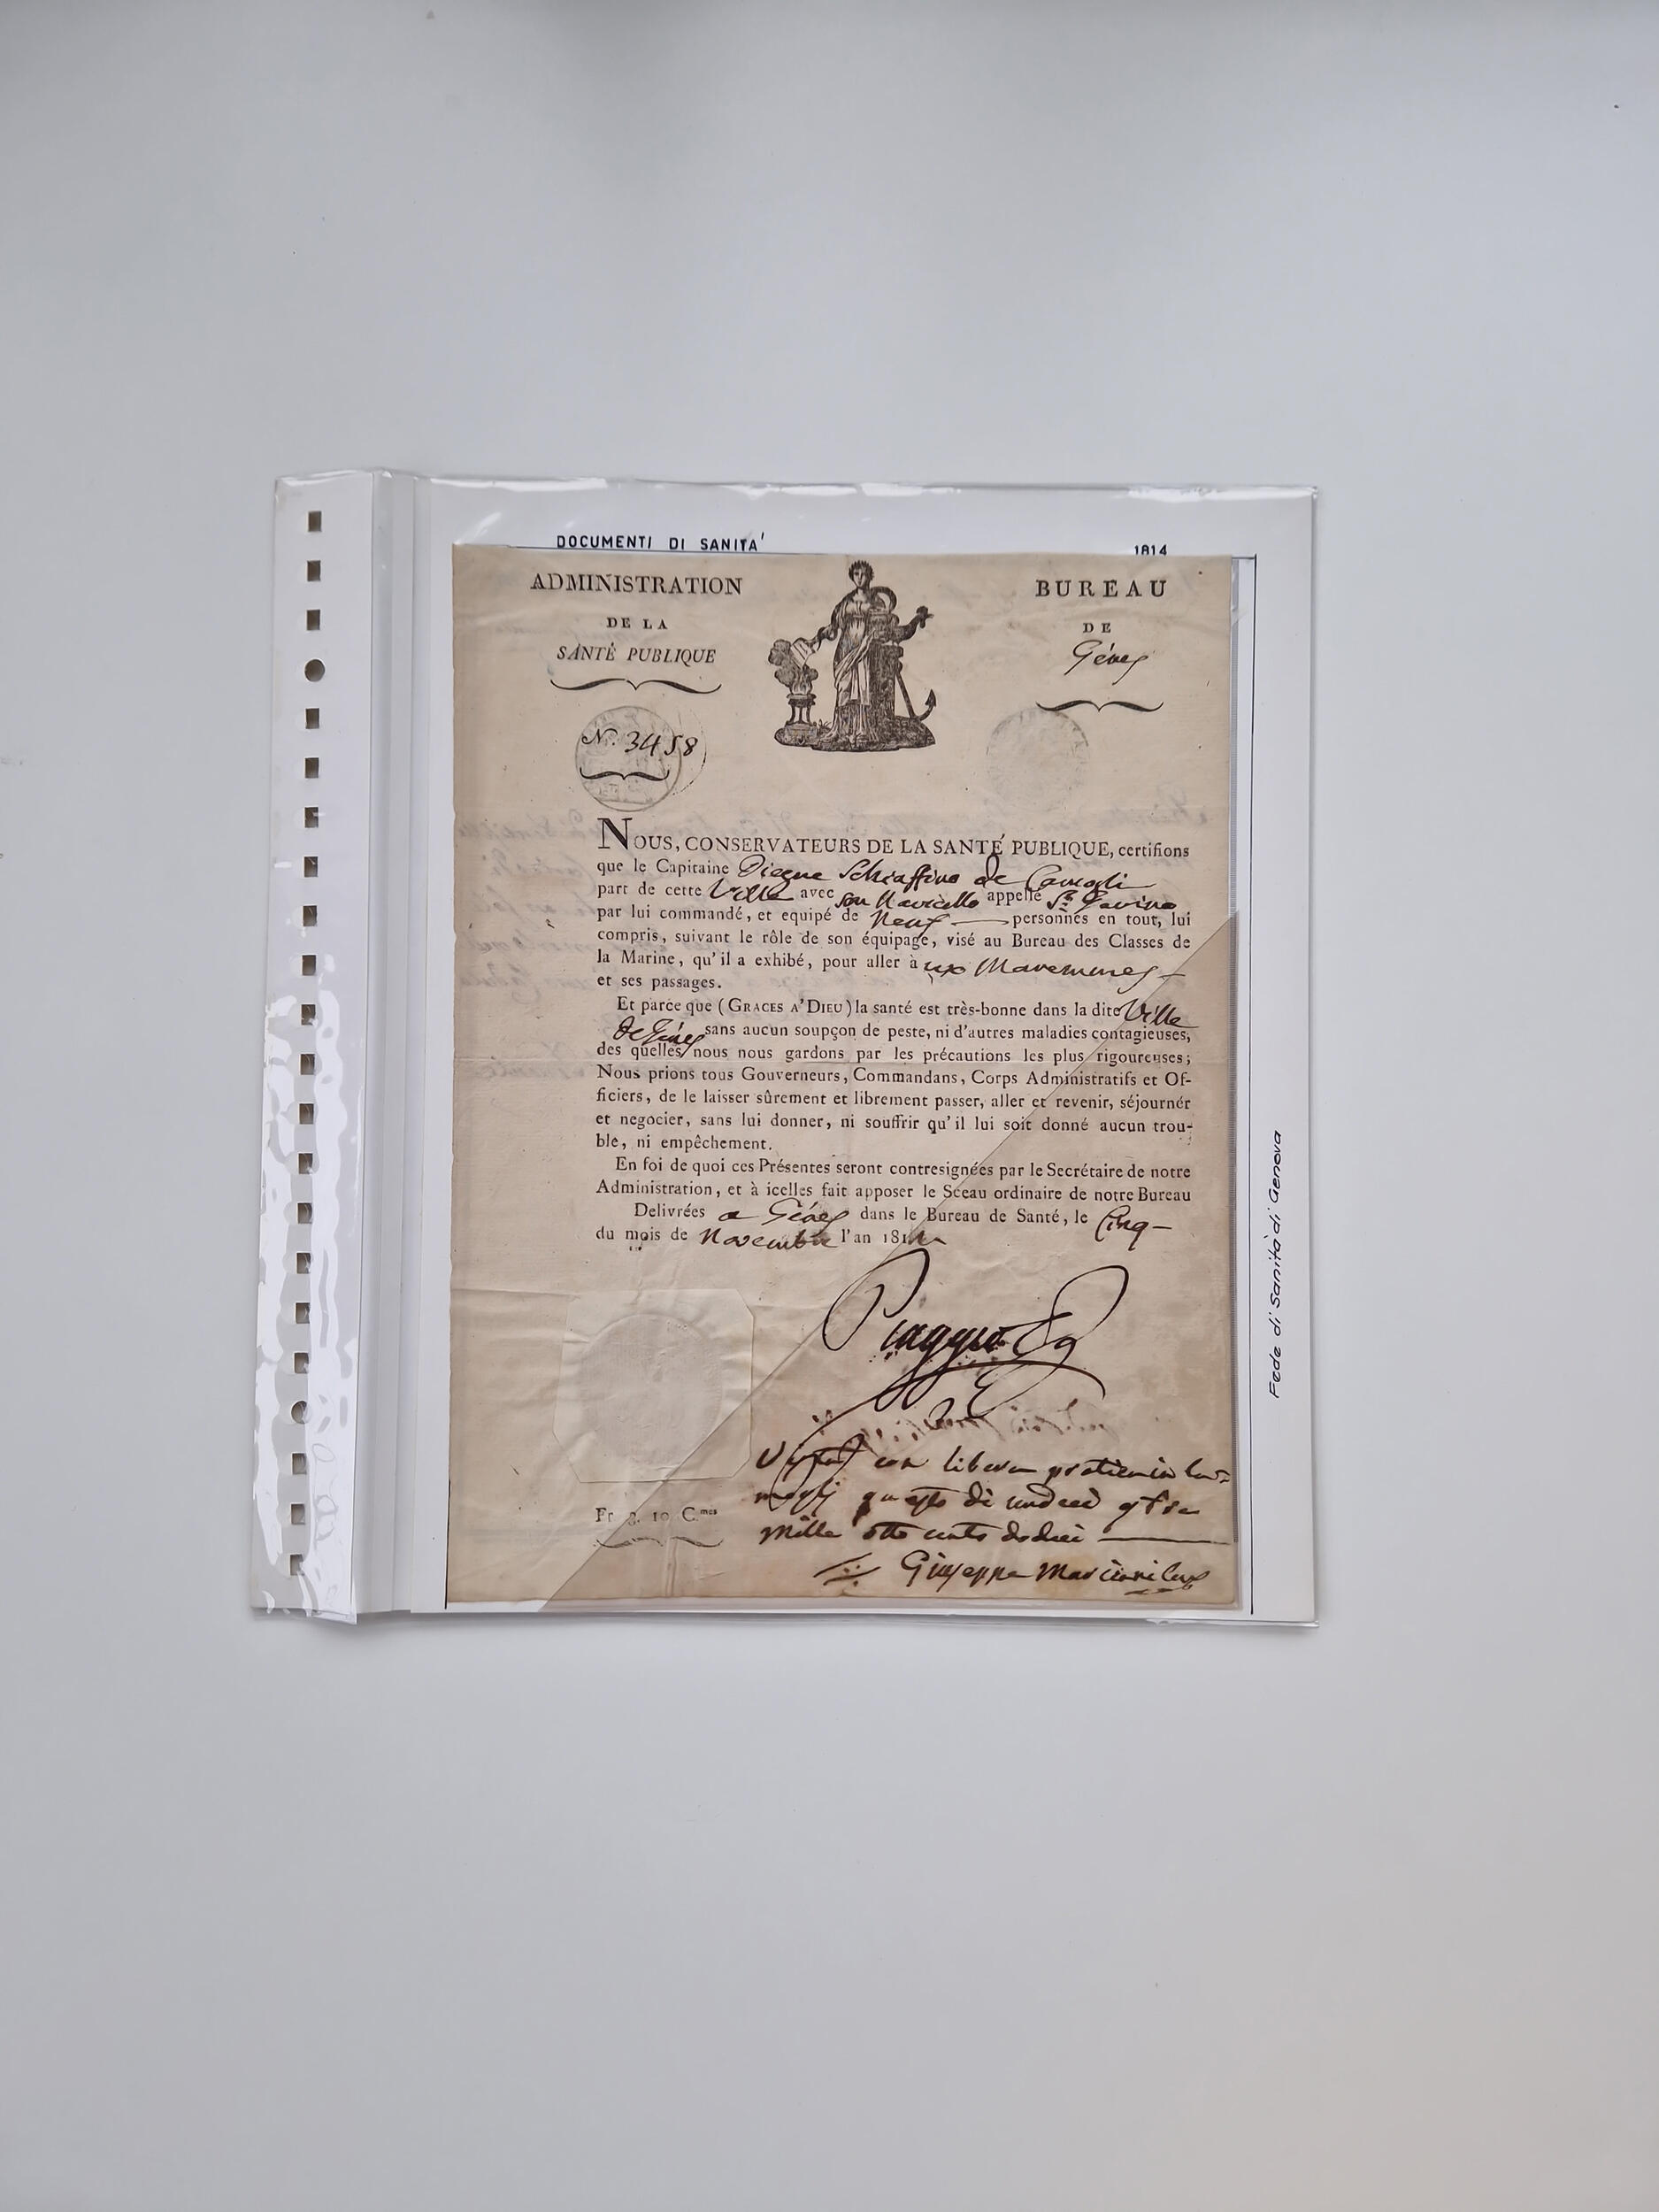 DOCUMENTI DI SANITA'
1814
ADMINISTRATION
DE LA
SANTÉ PUBLIQUE
BUREAU
DE
Gênes
N. 3458
NOUS, CONSERVATEURS DE LA SANTÉ PUBLIQUE, certifions
que le Capitaine Schiaffino de Camogli
part de cette Ville avec son Navicello appellé
par lui commandé, et equipé de Neuf personnes en tout, lui
compris, suivant le rôle de son équipage, visé au Bureau des Classes de
la Marine, qu'il a exhibé, pour aller à ux Maremmes
et ses passages.
Et parce que (GRACES A'DIEU) la santé est très-bonne dans la dite Ville
de Gênes sans aucun soupçon de peste, ni d'autres maladies contagieuses,
des quelles nous nous gardons par les précautions les plus rigoureuses;
Nous prions tous Gouverneurs, Commandans, Corps Administratifs et Of-
ficiers, de le laisser sûrement et librement passer, aller et revenir, séjournér
et negocier, sans lui donner, ni souffrir qu'il lui soit donné aucun trou-
ble, ni empêchement.
En foi de quoi ces Présentes seront contresignées par le Secrétaire de notre
Administration, et à icelles fait apposer le Sceau ordinaire de notre Bureau
Delivrées a Gênes dans le Bureau de Santé, le Cinq
du mois de Novembre l'an 181
Piaggio
con libera pratica in Ca-
mogli questo di undeci
mille otto cento dodeci
Giuseppe
Fr. 3. 10 C.mes
Fede di Sanità di Genova